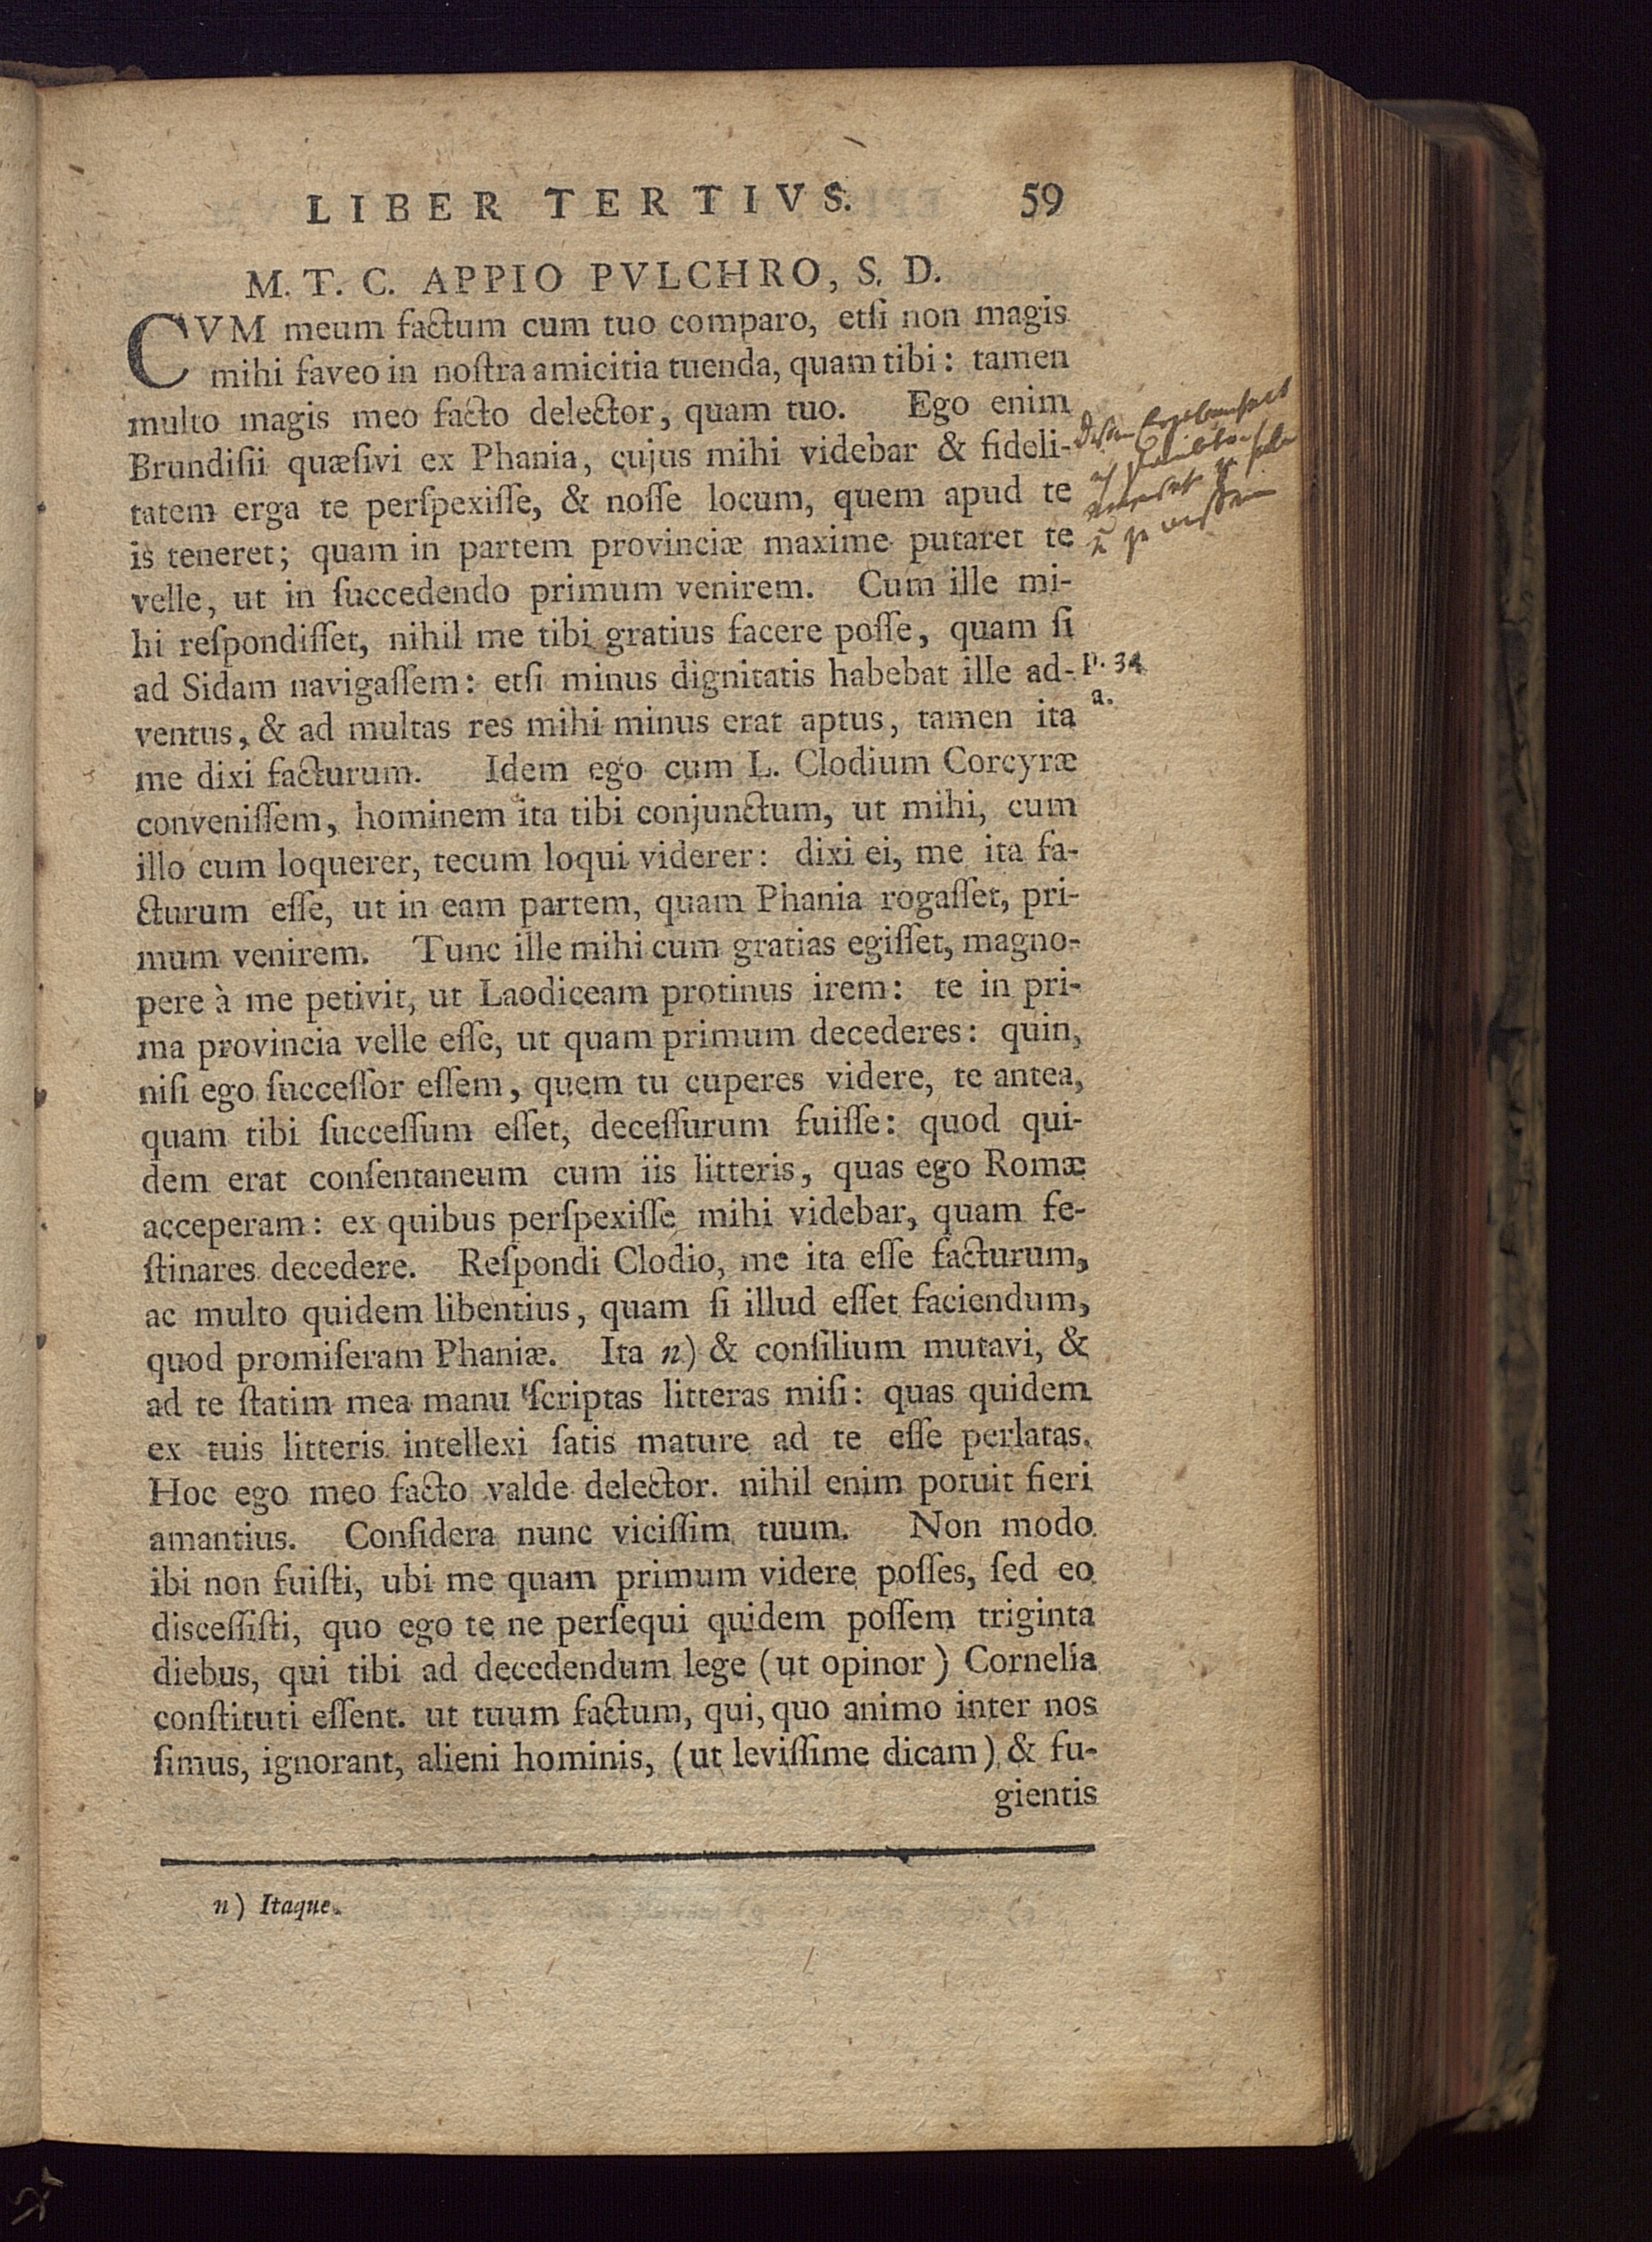 LIBER TERTIVS. 59
M. T. C. APPIO PVLCHRO, S. D.
CVM meum factum cum tuo comparo, etſi non magis
mihi faveo in noſtra amicitia tuenda, quam tibi: tamen
multo magis meo facto delector, quam tuo. Ego enim
Brundiſii quæſivi ex Phania, cujus mihi videbar & fideli-
tatem erga te perſpexiſſe, & noſſe locum, quem apud te
is teneret; quam in partem provinciæ maxime putaret te
velle, ut in ſuccedendo primum venirem. Cum ille mi-
hi reſpondiſſet, nihil me tibi gratius facere poſſe, quam ſi
ad Sidam navigaſſem: etſi minus dignitatis habebat ille ad-
P. 34
a.
ventus, & ad multas res mihi minus erat aptus, tamen ita
me dixi facturum. Idem ego cum L. Clodium Corcyræ
conveniſſem, hominem ita tibi conjunctum, ut mihi, cum
illo cum loquerer, tecum loqui viderer: dixi ei, me ita fa-
cturum eſſe, ut in eam partem, quam Phania rogaſſet, pri-
mum venirem. Tunc ille mihi cum gratias egiſſet, magno-
pere à me petivit, ut Laodiceam protinus irem: te in pri-
ma provincia velle eſſe, ut quam primum decederes: quin,
niſi ego ſucceſſor eſſem, quem tu cuperes videre, te antea,
quam tibi ſucceſſum eſſet, deceſſurum fuiſſe: quod qui-
dem erat conſentaneum cum iis litteris, quas ego Romæ
acceperam: ex quibus perſpexiſſe mihi videbar, quam fe-
ſtinares decedere. Reſpondi Clodio, me ita eſſe facturum,
ac multo quidem libentius, quam ſi illud eſſet faciendum,
quod promiſeram Phaniæ. Ita n) & conſilium mutavi, &
ad te ſtatim mea manu ſcriptas litteras miſi: quas quidem
ex tuis litteris intellexi ſatis mature ad te eſſe perlatas.
Hoc ego meo facto valde delector. nihil enim potuit fieri
amantius. Conſidera nunc viciſſim tuum. Non modo
ibi non fuiſti, ubi me quam primum videre poſſes, ſed eo
diſceſſiſti, quo ego te ne perſequi quidem poſſem triginta
diebus, qui tibi ad decedendum lege (ut opinor) Cornelia
conſtituti eſſent. ut tuum factum, qui, quo animo inter nos
ſimus, ignorant, alieni hominis, (ut leviſſime dicam) & fu-
gientis
n) Itaque.